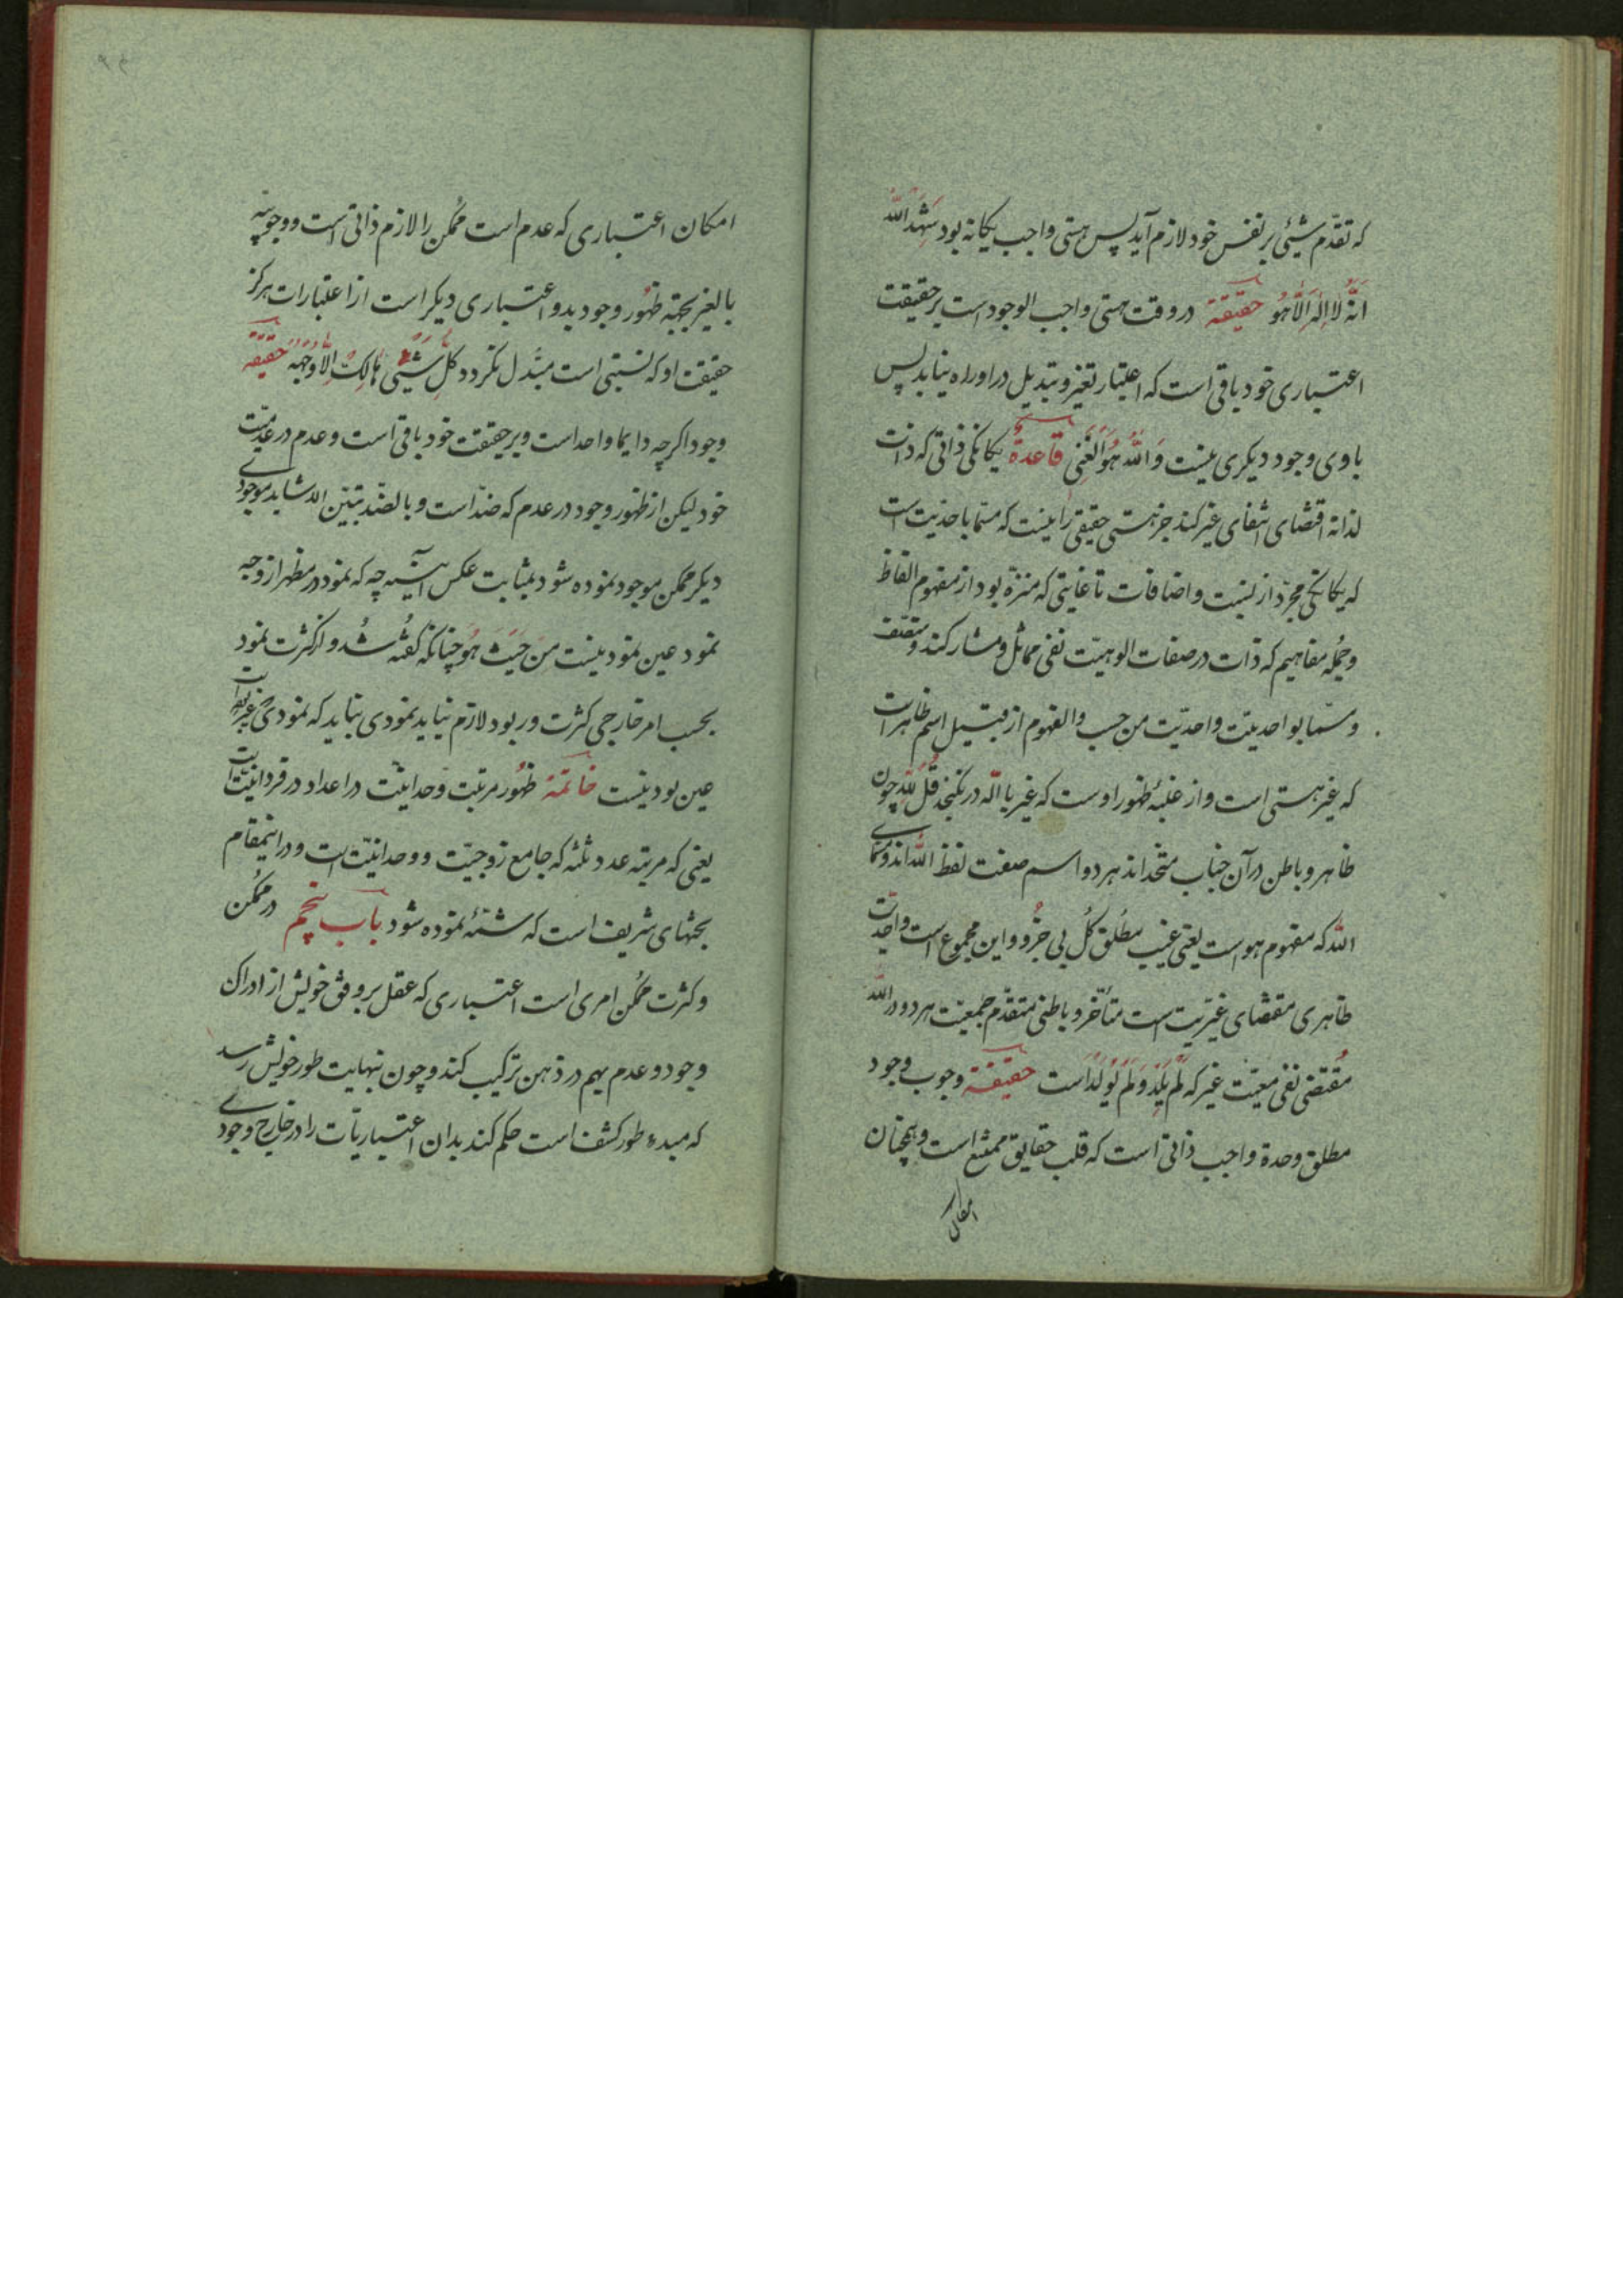 که تقدّم شیئی بر نفس خود لازم آید پس هستی واجب یکانه بود شَهِدَ اللّه
اَنَّهُ لا اِلٰهَ اِلّا هُوَ حقیقة در وقت هستی واجب الوجود است بر حقیقت
اعتباری خود باقی است که اعتبار تغیر و تبدیل در او راه نیابد پس
با وی وجود دیکری نیست وَ اللّهُ هُوَ الْغَنِی قاعدة یکانکی ذاتی که ذات
لذاته اقتضای انتفای غیر کند جز هستی حقیقی را نیست که مسمّا باحدیّت است
که یکانکی مجرّد از نسبت و اضافات تا غایتی که منزّه بود از مفهوم الفاظ
و جمله مفاهیم که ذات در صفات الوهیّت نفی مماثل و مشارک کند و متصف
و مسمّا بواحدیّت و احدیّت من حسب والفهوم از قبیل اسم ظاهر است
که غیر هستی است و از غلبهٔ ظهور اوست که غیر با الّه در نکنجد قُلِ للّهِ چون
ظاهر و باطن در آن جناب متحداند هر دو اسم صفت لفظ اللّه اند و مسمّای
اللّه که مفهوم هو است یعنی غیب مطلق کل بی جُزو و این مجموع است و احدیت
ظاهری مقتضای غیریت است متأخّر و باطنی متقدّم جمعیّت هر دو در اللّه
مُقتضی نفی معیّت غیر که لَمْ یَلِدْ وَ لَمْ یُولَدْ است حقیقة وجوب وجود
مطلق وحدة واجب ذاتی است که قلب حقایق ممتنع است و همچنان
امکان
امکان اعتباری که عدم است مُمکن را لازم ذاتی است و وجوبیّه
بالغیر بجهة ظهور وجود بدو اعتباری دیکر است از اعتبارات هرکز
حقیقت او که نسبتی است مبتدل نکردد کُلُّ شَیْئٍ هٰالِکٌ اِلّا وَجْهَهُ حقیقة
وجود اکرچه دایما واحد است و بر حقیقت خود باقی است و عدم در عدمیّت
خود لیکن از ظهور وجود در عدم که ضدّ است و بالضّد تبیّن الاشیاء موجودی
دیکر ممکن موجود نموده شود بمثابت عکس آیینه چه که نمود در مظهر از وجه
نمود عین نمود نیست مِن حَیثُ هُوَ چنانکه کفته شُد و از کثرت نمود
بحسب امر خارجی کثرت در بود لازم نیاید نمودی نباید که نمودی غیر بود است
عین بود نیست خاتمة ظهور مرتبت وحدانیّت در اعداد در فردانیّت است
یعنی که مرتبه عدد ثلثه که جامع زوجیّت و وحدانیّت است و در اینمقام
بحثهای شریف است که شمّهٔ نموده شود باب پنجم در مُمکن
و کثرت مُمکن امری است اعتباری که عقل بر وفق خویش از ادراک
وجود و عدم بهم در ذهن ترکیب کند و چون بنهایت طور خویش رسد
که مبدء طور کشف است حکم کند بدان اعتباریّات را در خارج وجودی